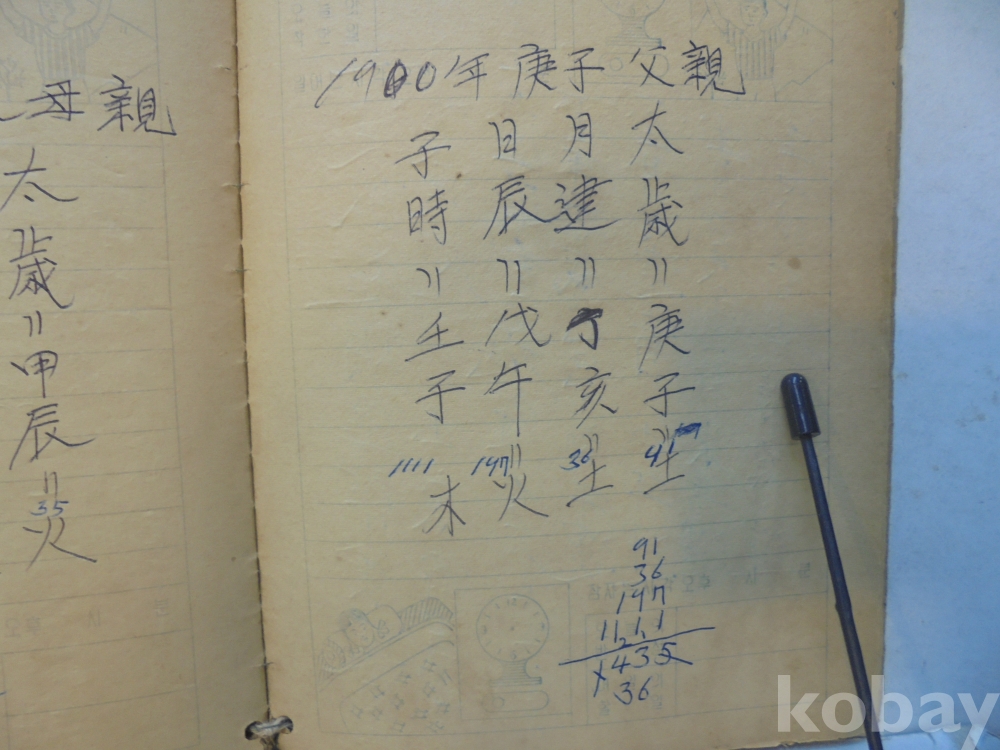 母親
太歲〃甲辰〃火
35
1900年 庚子 父親
太歲〃庚子〃土
月建〃丁亥〃土
36
日辰〃戊午〃火
197
子時〃壬子
木
1111
91
36
197
1111
1435
36
kobay